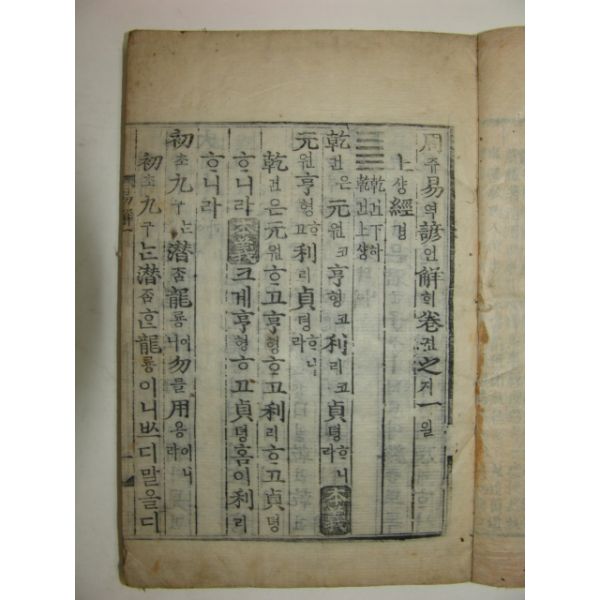 周쥬易역諺언解ᄒᆡ卷권之지一일
上샹經경
乾건下하 乾건上샹
乾건은元원코亨형코利리코貞뎡ᄒᆞ니라 本義
元원亨형ᄒᆞ고利리貞뎡ᄒᆞ니라
乾건은元원ᄒᆞ고亨형ᄒᆞ고利리ᄒᆞ고貞뎡
ᄒᆞ니라 本義 크게亨형ᄒᆞ고貞뎡홈이利리
ᄒᆞ니라
初초九구ᄂᆞᆫ潛ᄌᆞᆷ龍룡이니勿믈用용이니라
初초九구ᄂᆞᆫ潛ᄌᆞᆷᄒᆞᆫ龍룡이니ᄡᅳ디말올디